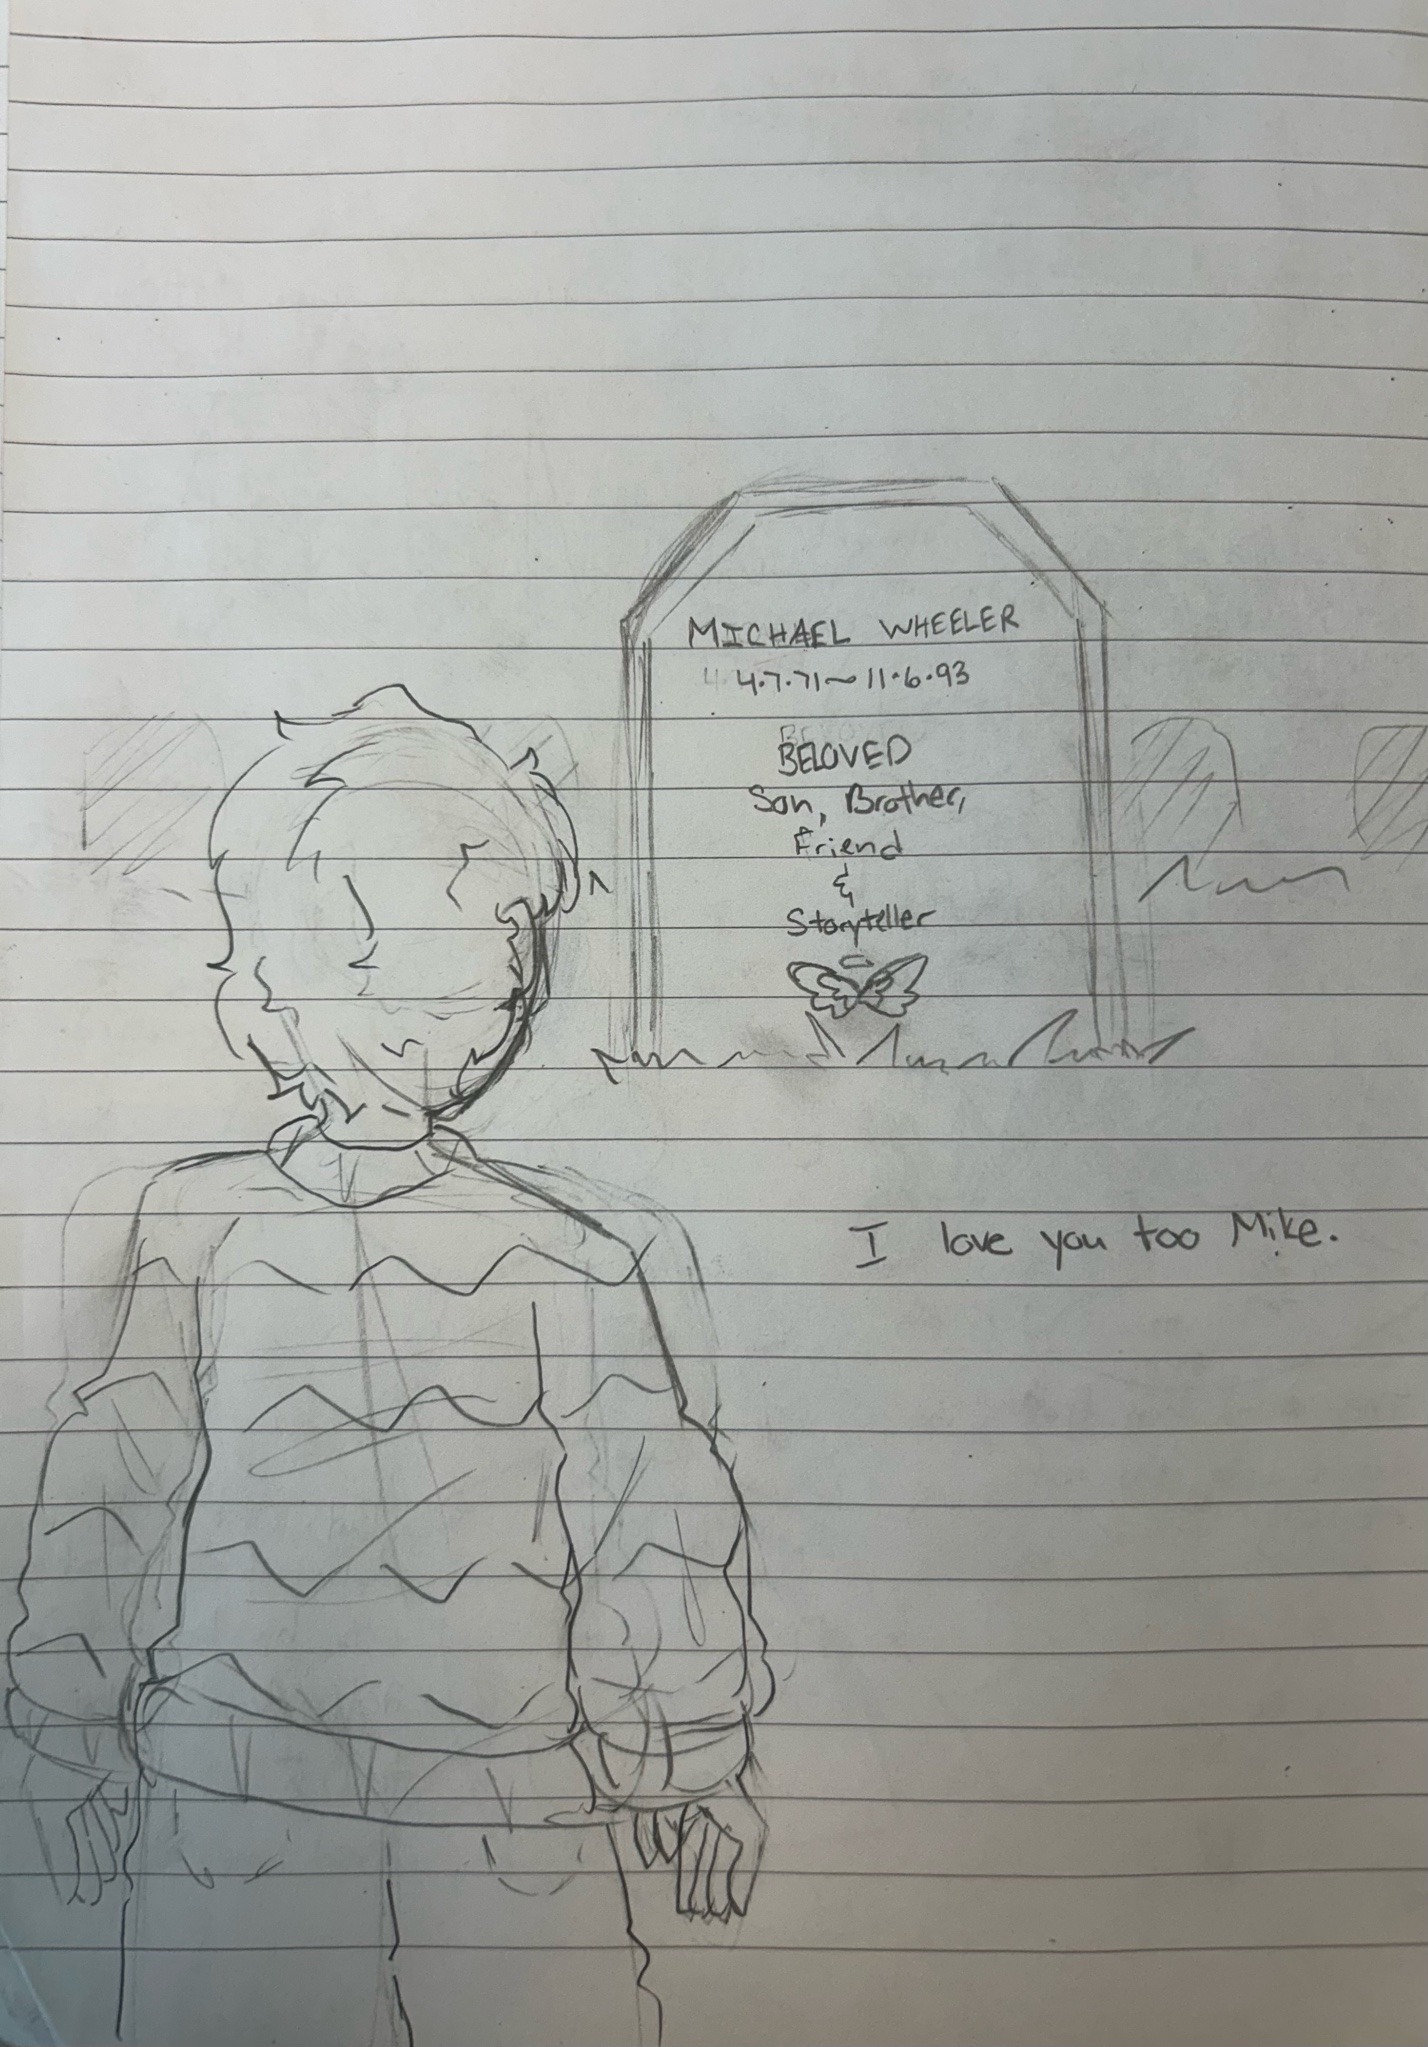 MICHAEL WHEELER
4.7.71~11.6.93
BELOVED
Son, Brother,
Friend
&
Storyteller
I love you too Mike.